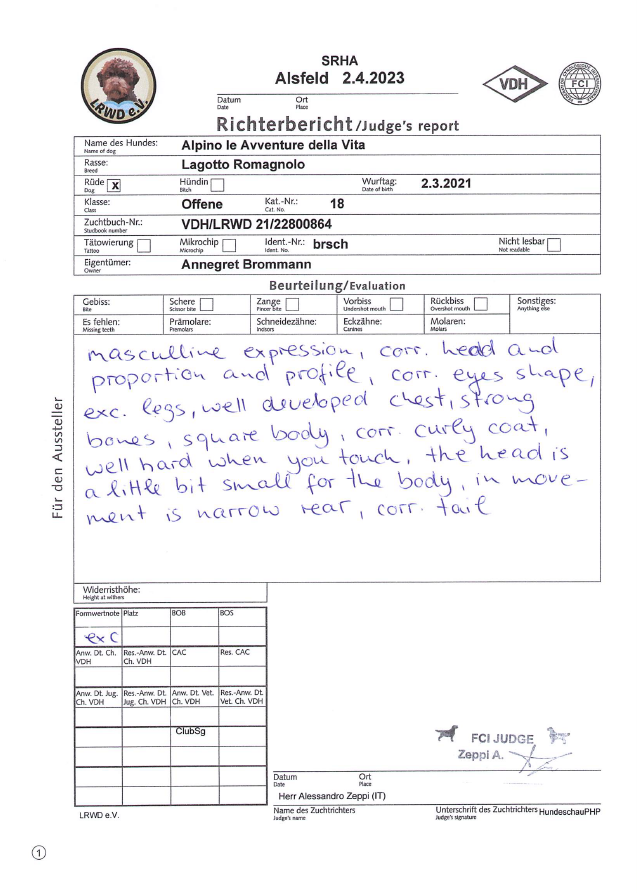 SRHA
Alsfeld 2.4.2023
LRWD e.V.
VDH
FCI
Datum Ort
Date Place
Richterbericht/Judge's report
Name des Hundes: Alpino le Avventure della Vita
Name of dog
Rasse: Lagotto Romagnolo
Breed
Rüde X Hündin Wurftag: 2.3.2021
Dog Bitch Date of birth
Klasse: Offene Kat.-Nr.: 18
Class Cat. No.
Zuchtbuch-Nr.: VDH/LRWD 21/22800864
Studbook number
Tätowierung Mikrochip Ident.-Nr.: brsch Nicht lesbar
Tattoo Microchip Ident. No. Not readable
Eigentümer: Annegret Brommann
Owner
Beurteilung/Evaluation
Gebiss: Schere Zange Vorbiss Rückbiss Sonstiges:
Bite Scissor bite Pincer bite Undershot mouth Overshot mouth Anything else
Es fehlen: Prämolare: Schneidezähne: Eckzähne: Molaren:
Missing teeth Premolars Incisors Canines Molars
masculline expression, corr. head and
proportion and profile, corr. eyes shape,
exc. legs, well developed chest, strong
bones, square body, corr. curly coat,
well hard when you touch, the head is
a little bit small for the body, in move-
ment is narrow rear, corr. tail
Für den Aussteller
Widerristhöhe:
Height at withers
Formwertnote Platz BOB BOS
ex C
Anw. Dt. Ch. Res.-Anw. Dt. CAC Res. CAC
VDH Ch. VDH
Anw. Dt. Jug. Res.-Anw. Dt. Anw. Dt. Vet. Res.-Anw. Dt.
Ch. VDH Jug. Ch. VDH Ch. VDH Vet. Ch. VDH
ClubSg
FCI JUDGE
Zeppi A.
Datum Ort
Date Place
Herr Alessandro Zeppi (IT)
LRWD e.V. Name des Zuchtrichters Unterschrift des Zuchtrichters HundeschauPHP
Judge's name Judge's signature
1